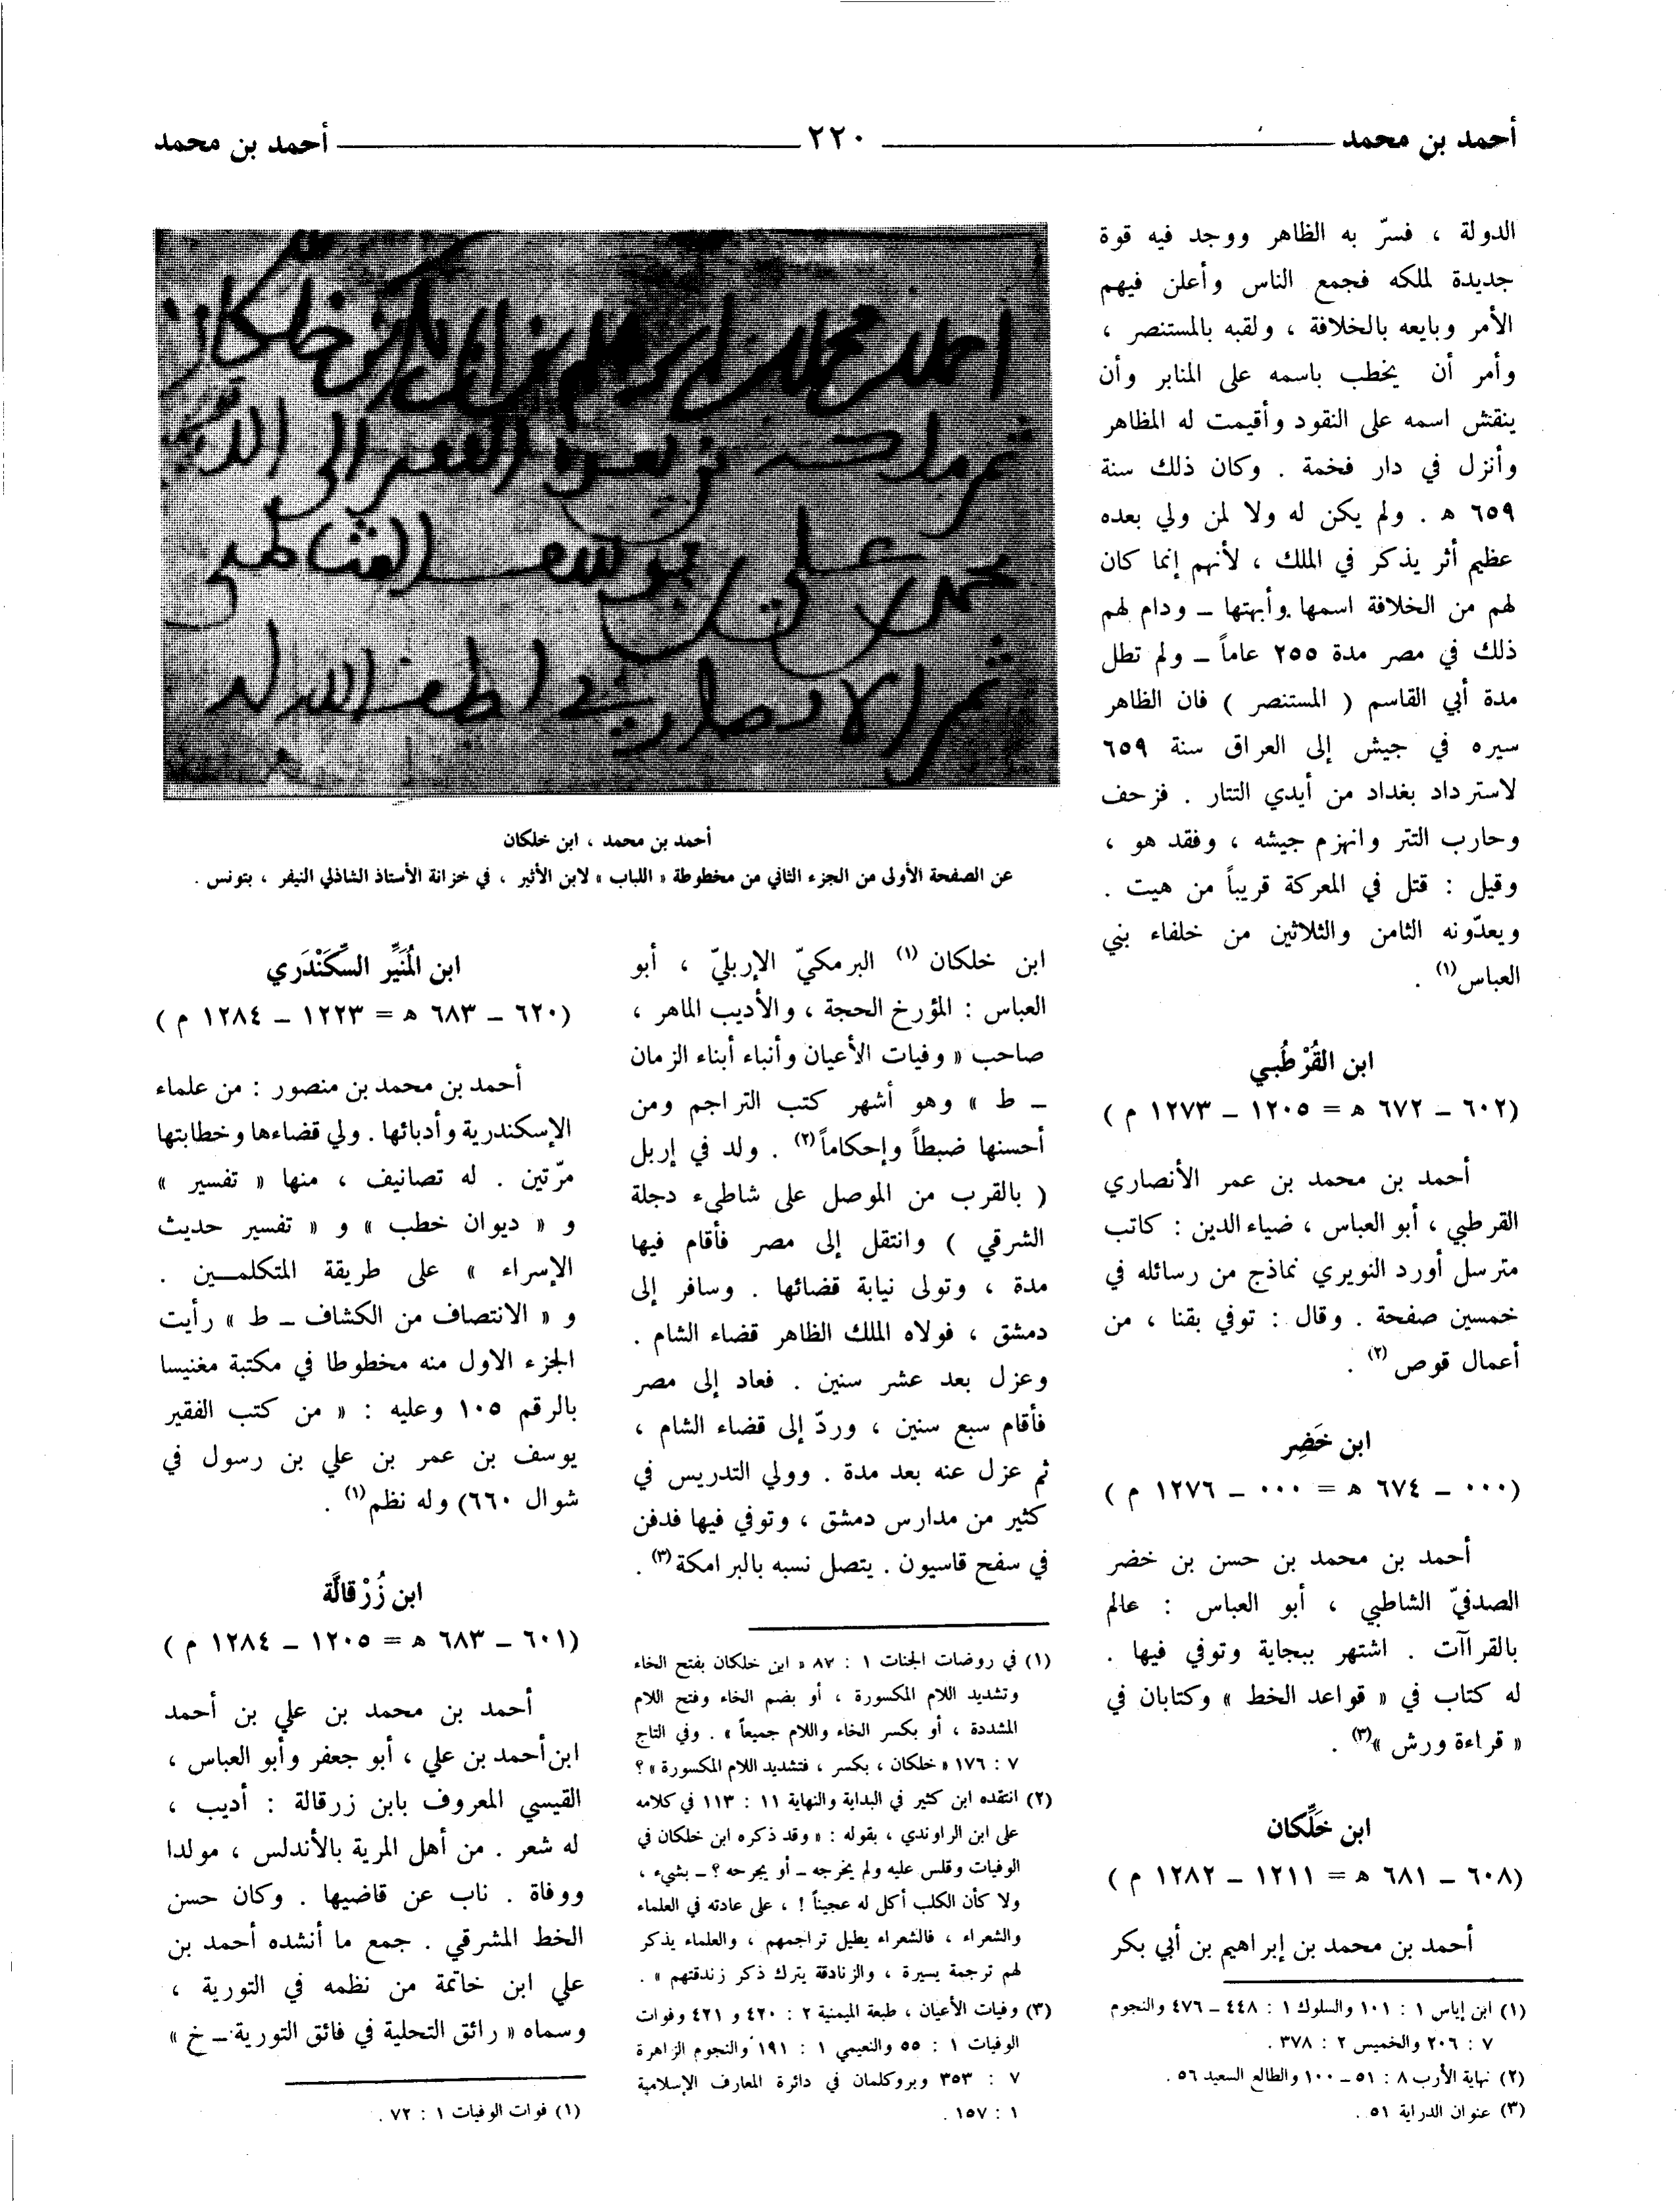 أحمد بن محمد ٢٢٠ أحمد بن محمد
الدولة ، فسرّ به الظاهر ووجد فيه قوة
جديدة لملكه فجمع الناس وأعلن فيهم
الأمر وبايعه بالخلافة ، ولقبه بالمستنصر ،
وأمر أن يخطب باسمه على المنابر وأن
ينقش اسمه على النقود وأقيمت له المظاهر
وأنزل في دار فخمة . وكان ذلك سنة
٦٥٩ هـ . ولم يكن له ولا لمن ولي بعده
عظيم أثر يذكر في الملك ، لأنهم إنما كان
لهم من الخلافة اسمها وأبهتها – ودام لهم
ذلك في مصر مدة ٢٥٥ عاماً – ولم تطل
مدة أبي القاسم ( المستنصر ) فان الظاهر
سيره في جيش إلى العراق سنة ٦٥٩
لاسترداد بغداد من أيدي التتار . فزحف
وحارب التتر وانهزم جيشه ، وفقد هو ،
وقيل : قتل في المعركة قريباً من هيت .
ويعدّونه الثامن والثلاثين من خلفاء بني
العباس(١) .
ابن القُرْطُبي
(٦٠٢ – ٦٧٢ هـ = ١٢٠٥ – ١٢٧٣ م )
أحمد بن محمد بن عمر الأنصاري
القرطبي ، أبو العباس ، ضياء الدين : كاتب
مترسل أورد النويري نماذج من رسائله في
خمسين صفحة . وقال : توفي بقنا ، من
أعمال قوص (٢) .
ابن خَضِر
(٠٠٠ – ٦٧٤ هـ = ٠٠٠ – ١٢٧٦ م )
أحمد بن محمد بن حسن بن خضر
الصدفيّ الشاطبي ، أبو العباس : عالم
بالقراآت . اشتهر ببجاية وتوفي فيها .
له كتاب في « قواعد الخط » وكتابان في
« قراءة ورش »(٣) .
ابن خَلِّكان
(٦٠٨ – ٦٨١ هـ = ١٢١١ – ١٢٨٢ م )
أحمد بن محمد بن إبراهيم بن أبي بكر
(١) ابن إياس ١ : ١٠١ والسلوك ١ : ٤٤٨ – ٤٧٦ والنجوم
٧ : ٢٠٦ والخميس ٢ : ٣٧٨ .
(٢) نهاية الأرب ٨ : ٥١ – ١٠٠ والطالع السعيد ٥٦ .
(٣) عنوان الدراية ٥١ .
أحمد بن محمد ، ابن خلكان
عن الصفحة الأولى من الجزء الثاني من مخطوطة « اللباب » لابن الأثير ، في خزانة الأستاذ الشاذلي النيفر ، بتونس .
ابن خلكان (١) البرمكيّ الإربليّ ، أبو
العباس : المؤرخ الحجة ، والأديب الماهر ،
صاحب « وفيات الأعيان وأنباء أبناء الزمان
– ط » وهو أشهر كتب التراجم ومن
أحسنها ضبطاً وإحكاماً(٢) . ولد في إربل
( بالقرب من الموصل على شاطىء دجلة
الشرقي ) وانتقل إلى مصر فأقام فيها
مدة ، وتولى نيابة قضائها . وسافر إلى
دمشق ، فولاه الملك الظاهر قضاء الشام .
وعزل بعد عشر سنين . فعاد إلى مصر
فأقام سبع سنين ، وردّ إلى قضاء الشام ،
ثم عزل عنه بعد مدة . وولي التدريس في
كثير من مدارس دمشق ، وتوفي فيها فدفن
في سفح قاسيون . يتصل نسبه بالبرامكة(٣) .
(١) في روضات الجنات ١ : ٨٧ « ابن خلكان بفتح الخاء
وتشديد اللام المكسورة ، أو بضم الخاء وفتح اللام
المشددة ، أو بكسر الخاء واللام جميعاً » . وفي التاج
٧ : ١٧٦ « خلكان ، بكسر ، فتشديد اللام المكسورة » ؟
(٢) انتقده ابن كثير في البداية والنهاية ١١ : ١١٣ في كلامه
على ابن الراوندي ، بقوله : « وقد ذكره ابن خلكان في
الوفيات وقلس عليه ولم يخرجه – أو يجرحه ؟ – بشيء ،
ولا كأن الكلب أكل له عجيناً ! ، على عادته في العلماء
والشعراء ، فالشعراء يطيل تراجمهم ، والعلماء يذكر
لهم ترجمة يسيرة ، والزنادقة يترك ذكر زندقتهم » .
(٣) وفيات الأعيان ، طبعة الميمنية ٢ : ٤٢٠ و ٤٢١ وفوات
الوفيات ١ : ٥٥ والنعيمي ١ : ١٩١ والنجوم الزاهرة
٧ : ٣٥٣ وبروكلمان في دائرة المعارف الإسلامية
١ : ١٥٧ .
ابن المُنَيِّر السِّكَنْدَري
(٦٢٠ – ٦٨٣ هـ = ١٢٢٣ – ١٢٨٤ م )
أحمد بن محمد بن منصور : من علماء
الإسكندرية وأدبائها . ولي قضاءها وخطابتها
مرّتين . له تصانيف ، منها « تفسير »
و « ديوان خطب » و « تفسير حديث
الإسراء » على طريقة المتكلمـين .
و « الانتصاف من الكشاف – ط » رأيت
الجزء الاول منه مخطوطا في مكتبة مغنيسا
بالرقم ١٠٥ وعليه : « من كتب الفقير
يوسف بن عمر بن علي بن رسول في
شوال ٦٦٠) وله نظم(١) .
ابن زُرْقالَّة
(٦٠١ – ٦٨٣ هـ = ١٢٠٥ – ١٢٨٤ م )
أحمد بن محمد بن علي بن أحمد
ابن أحمد بن علي ، أبو جعفر وأبو العباس ،
القيسي المعروف بابن زرقالة : أديب ،
له شعر . من أهل المرية بالأندلس ، مولدا
ووفاة . ناب عن قاضيها . وكان حسن
الخط المشرقي . جمع ما أنشده أحمد بن
علي ابن خاتمة من نظمه في التورية ،
وسماه « رائق التحلية في فائق التورية – خ »
(١) فوات الوفيات ١ : ٧٢ .